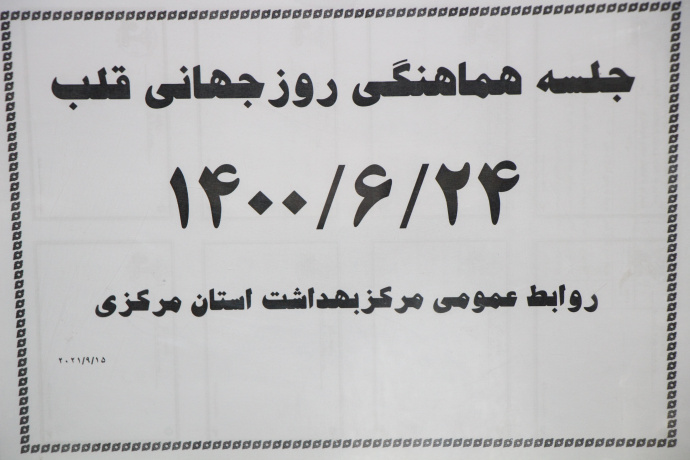 جلسه هماهنگی روز جهانی قلب
۱۴۰۰/۶/۲۴
روابط عمومی مرکز بهداشت استان مرکزی
۲۰۲۱/۹/۱۵